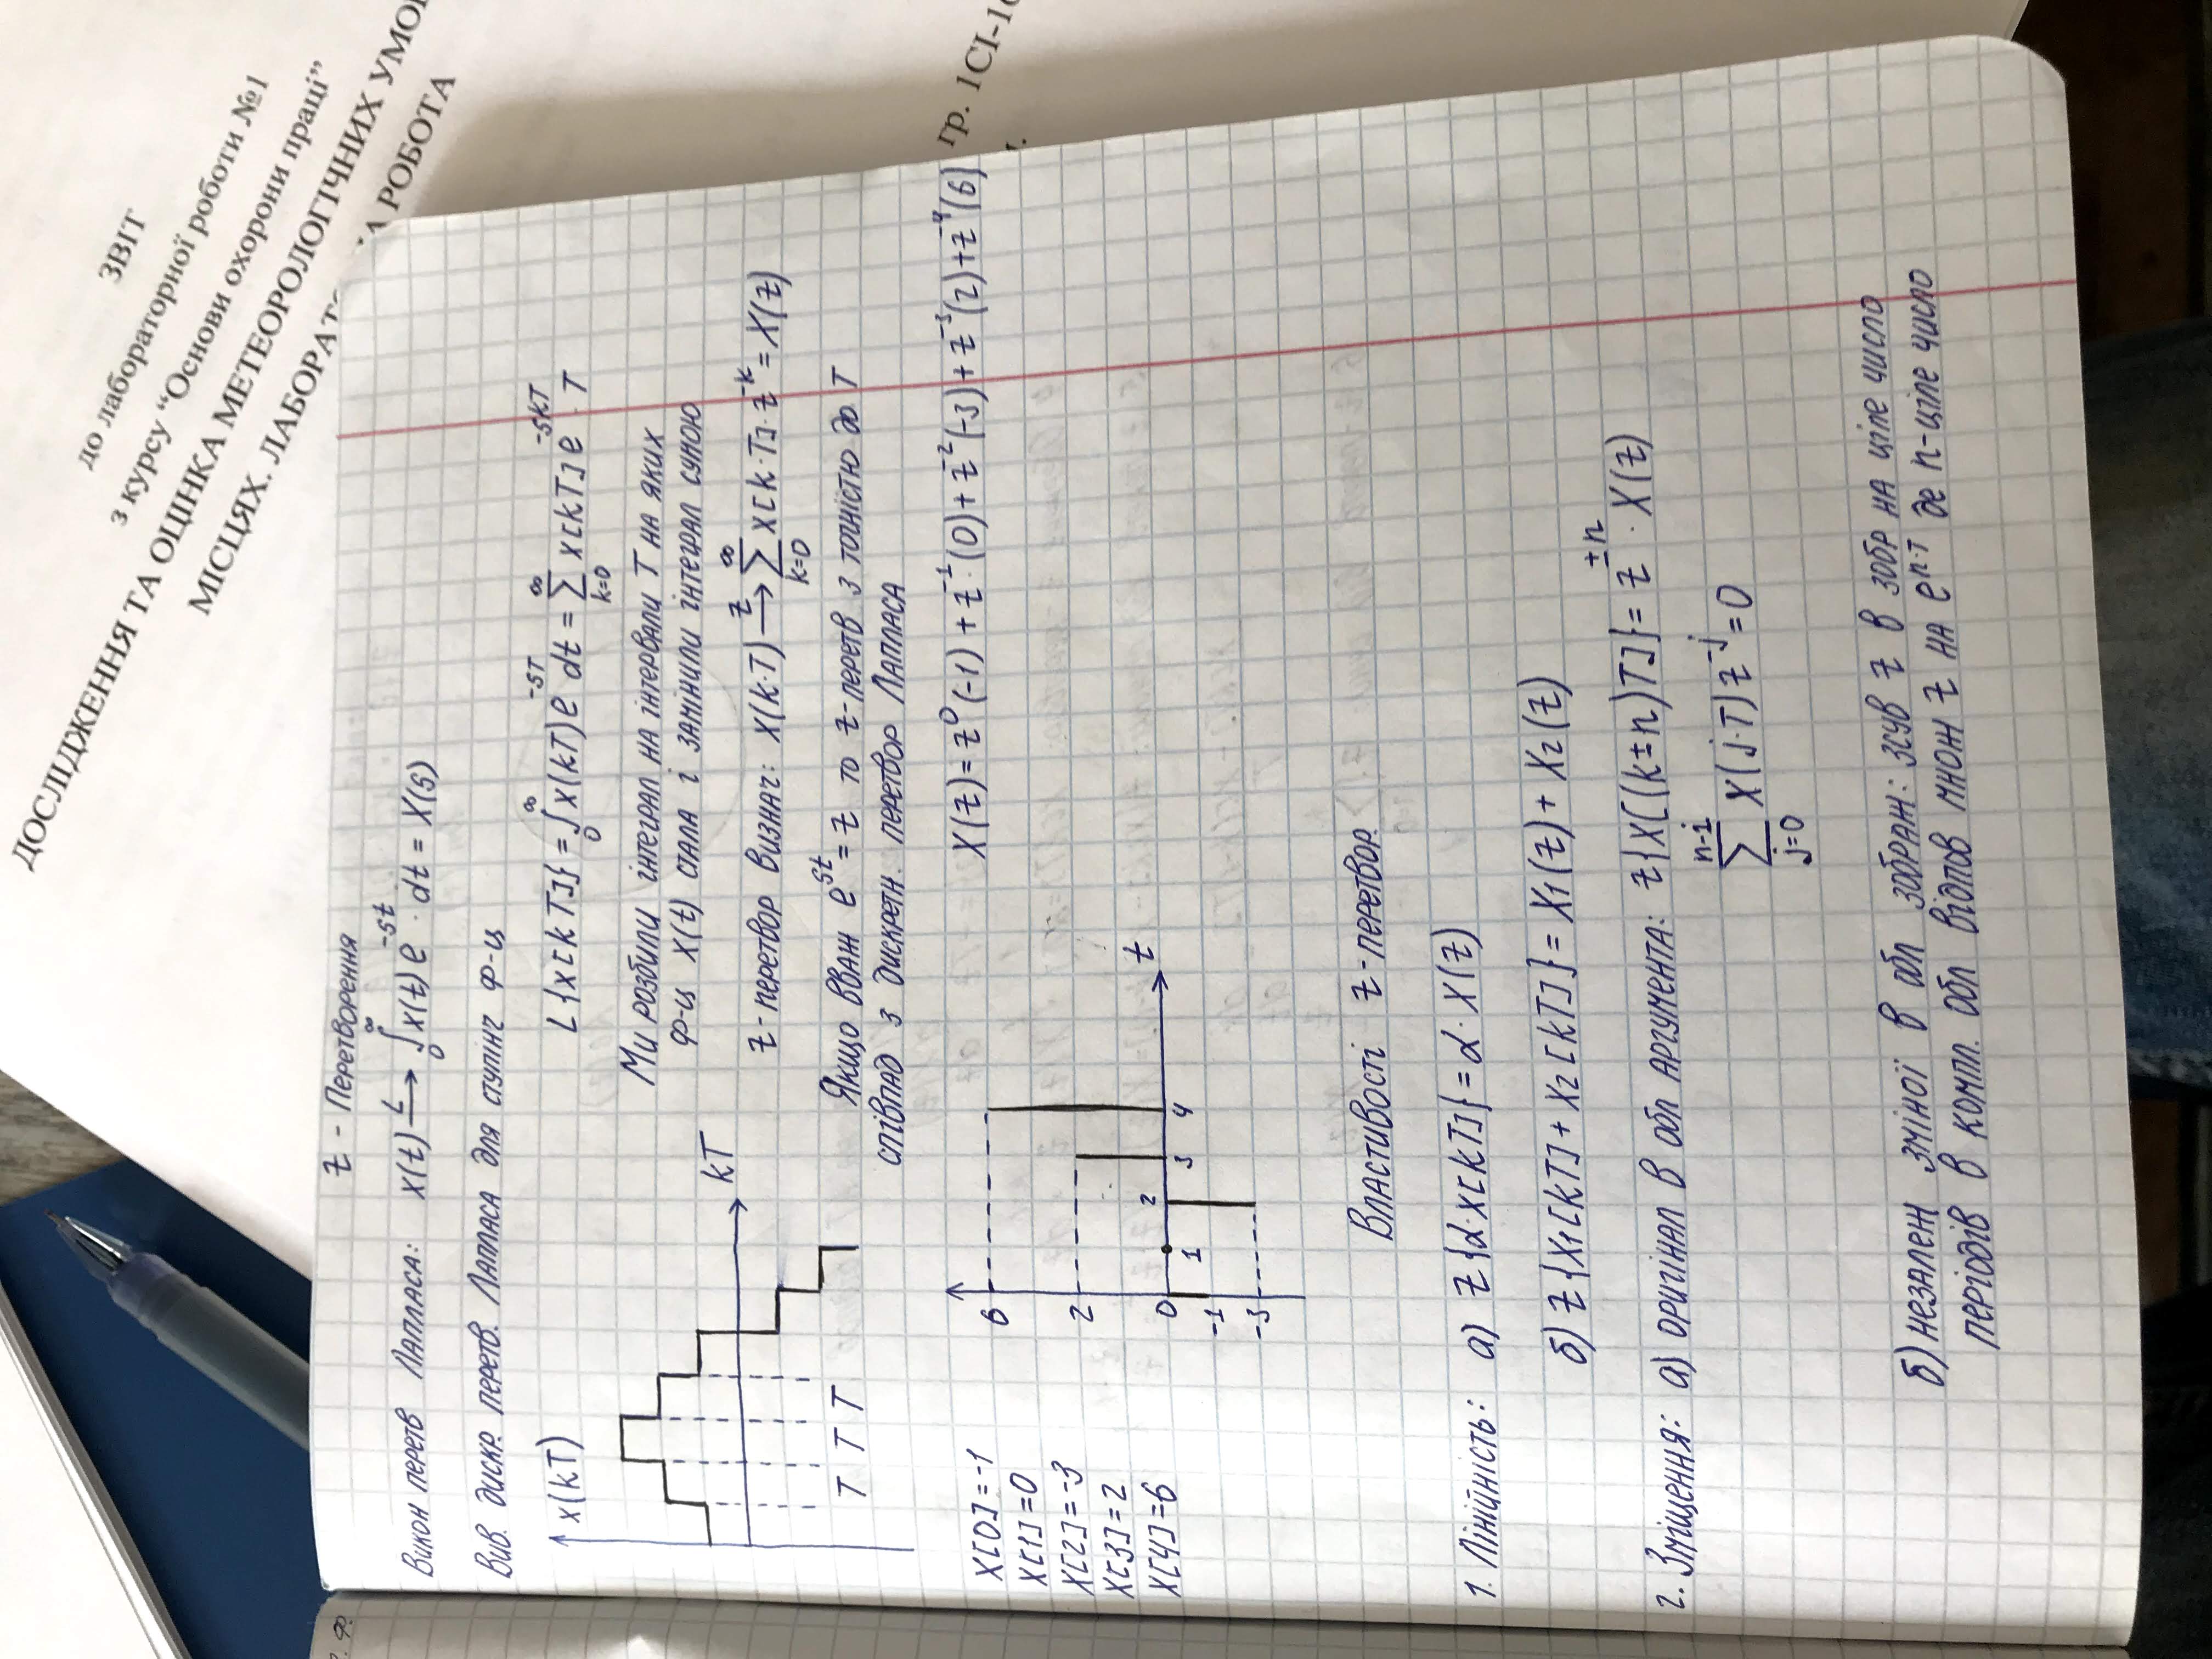 ЗВІТ
до лабораторної роботи №1
з курсу “Основи охорони праці”
ДОСЛІДЖЕННЯ ТА ОЦІНКА МЕТЕОРОЛОГІЧНИХ
МІСЦЯХ.
РОБОТА
гр. 1СІ-1
z - Перетворення
Викон перетв Лапласа: x(t) —L→ ∫₀^∞ x(t) e^-st · dt = X(s)
Вив. дискр. перетв. Лапласа для ступінч ф-ц
x(kT)
kT
T T T
L{x[kT]} = ∫₀^∞ x(kT) e^-sT dt = ∑_{k=0}^∞ x[kT] e^-skT · T
Ми розбили інтеграл на інтервали T на яких
ф-ц x(t) стала і замінили інтеграл сумою
z-перетвор визнач: x(k·T) —z→ ∑_{k=0}^∞ x[k·T]·z^-k = X(z)
Якщо вваж e^st = z то z-перетв з точністю до T
співпад з дискретн. перетвор Лапласа
X[0]=-1
X[1]=0
X[2]=-3
X[3]=2
X[4]=6
6
2
0
-1
-3
1
2
3
4
t
X(z)= z^0 (-1) + z^-1·(0) + z^-2(-3) + z^-3(2) + z^-4(6)
Властивості z-перетвор.
1. Лінійність: а) z{α·x[kT]} = α·X(z)
б) z{X₁[kT] + X₂[kT]} = X₁(z) + X₂(z)
2. Зміщення: а) оригінал в обл аргумента: z{X[(k±n)T]} = z^±n · X(z)
∑_{j=0}^{n-1} X(j·T) z^-j = 0
б) незалеж зміної в обл зображ: зсув z в зобр на ціле число
періодів в компл. обл відпов множ z на e^n·T де n-ціле число